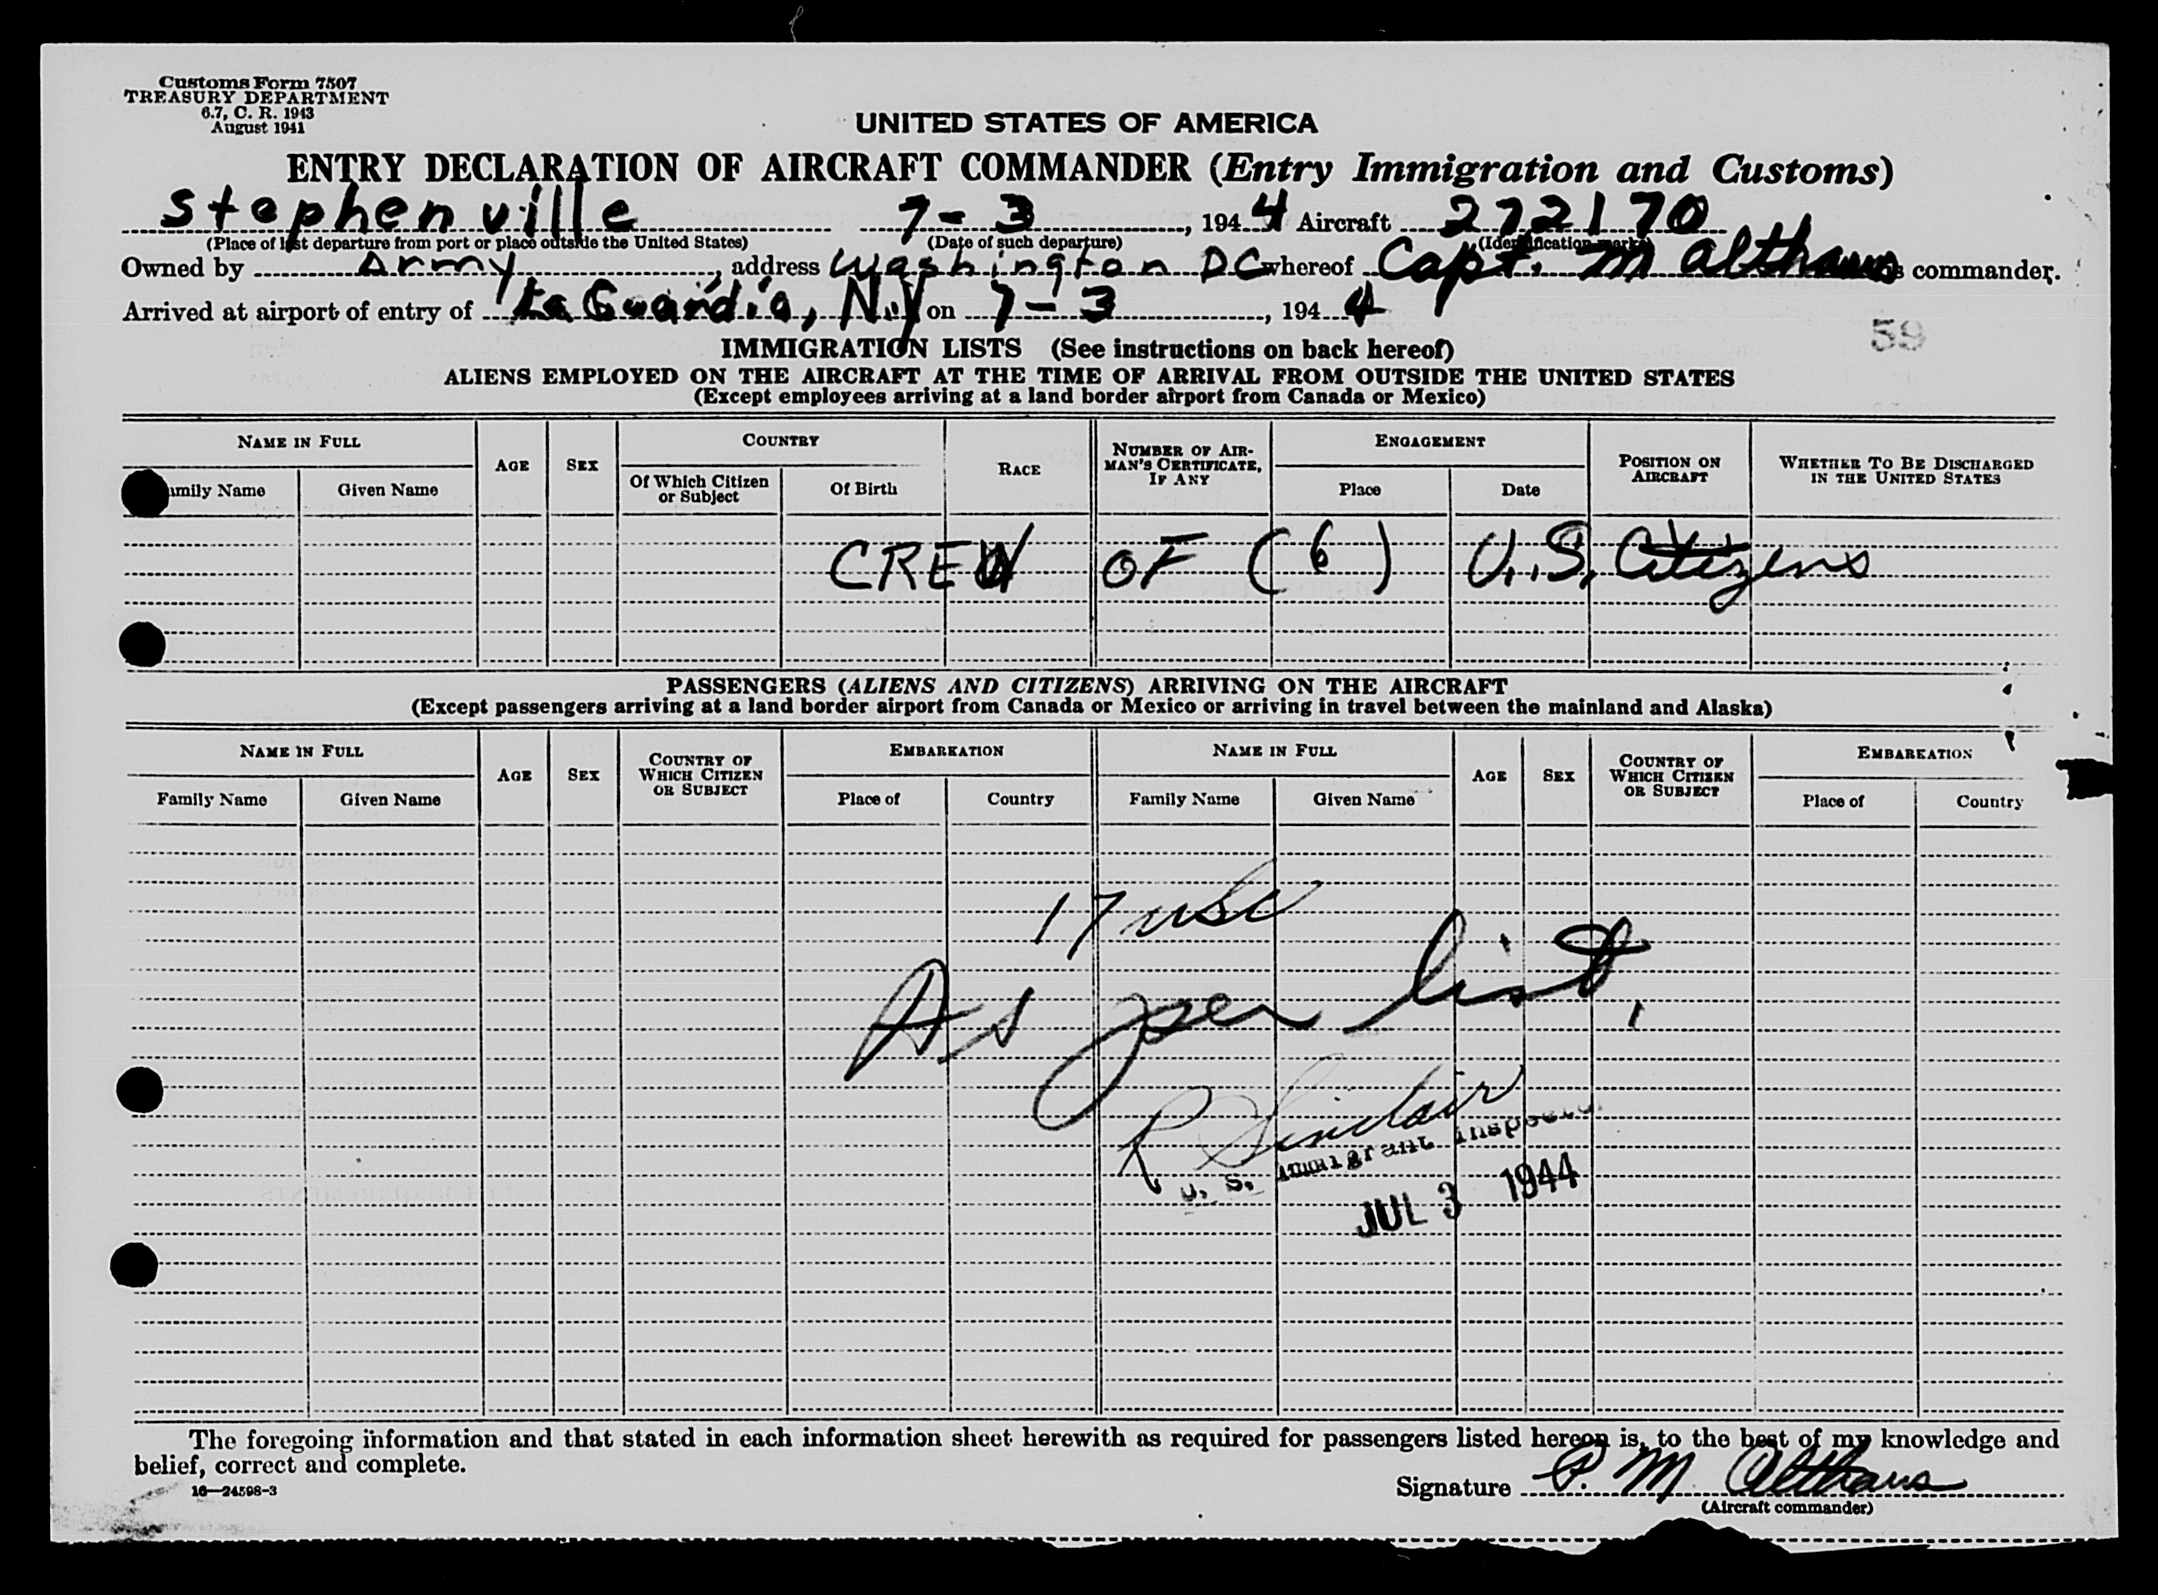 Customs Form 7507
TREASURY DEPARTMENT
6.7, C. R. 1943
August 1941
UNITED STATES OF AMERICA
ENTRY DECLARATION OF AIRCRAFT COMMANDER (Entry Immigration and Customs)
Stephenville 7-3, 1944 Aircraft 272170
(Place of last departure from port or place outside the United States) (Date of such departure) (Identification marks)
Owned by Army, address Washington DC whereof Capt. M Althaus is commander.
Arrived at airport of entry of La Guardia, N.Y on 7-3, 1944
59
IMMIGRATION LISTS (See instructions on back hereof)
ALIENS EMPLOYED ON THE AIRCRAFT AT THE TIME OF ARRIVAL FROM OUTSIDE THE UNITED STATES
(Except employees arriving at a land border airport from Canada or Mexico)
NAME IN FULL AGE SEX COUNTRY RACE NUMBER OF AIRMAN'S CERTIFICATE, IF ANY ENGAGEMENT POSITION ON AIRCRAFT WHETHER TO BE DISCHARGED IN THE UNITED STATES
Family Name Given Name Of Which Citizen or Subject Of Birth Place Date
CREW OF (6) U.S. Citizens
PASSENGERS (ALIENS AND CITIZENS) ARRIVING ON THE AIRCRAFT
(Except passengers arriving at a land border airport from Canada or Mexico or arriving in travel between the mainland and Alaska)
NAME IN FULL AGE SEX COUNTRY OF WHICH CITIZEN OR SUBJECT EMBARKATION NAME IN FULL AGE SEX COUNTRY OF WHICH CITIZEN OR SUBJECT EMBARKATION
Family Name Given Name Place of Country Family Name Given Name Place of Country
17 usc
As per list,
R Sinclair
U. S. Immigrant Inspector
JUL 3 1944
The foregoing information and that stated in each information sheet herewith as required for passengers listed hereon is, to the best of my knowledge and
belief, correct and complete.
Signature P. M. Althaus
16—24598-3
(Aircraft commander)